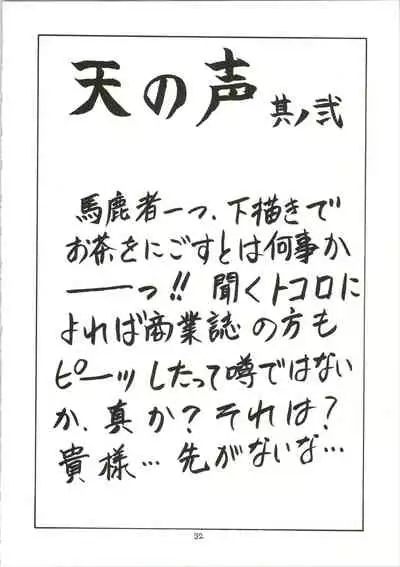 天の声 其ノ弐
馬鹿者ーっ、下描きで
お茶をにごすとは何事か
――っ!! 聞くトコロに
よれば商業誌の方も
ピーッしたって噂ではない
か、真か?それは?
貴様… 先がないな…
32